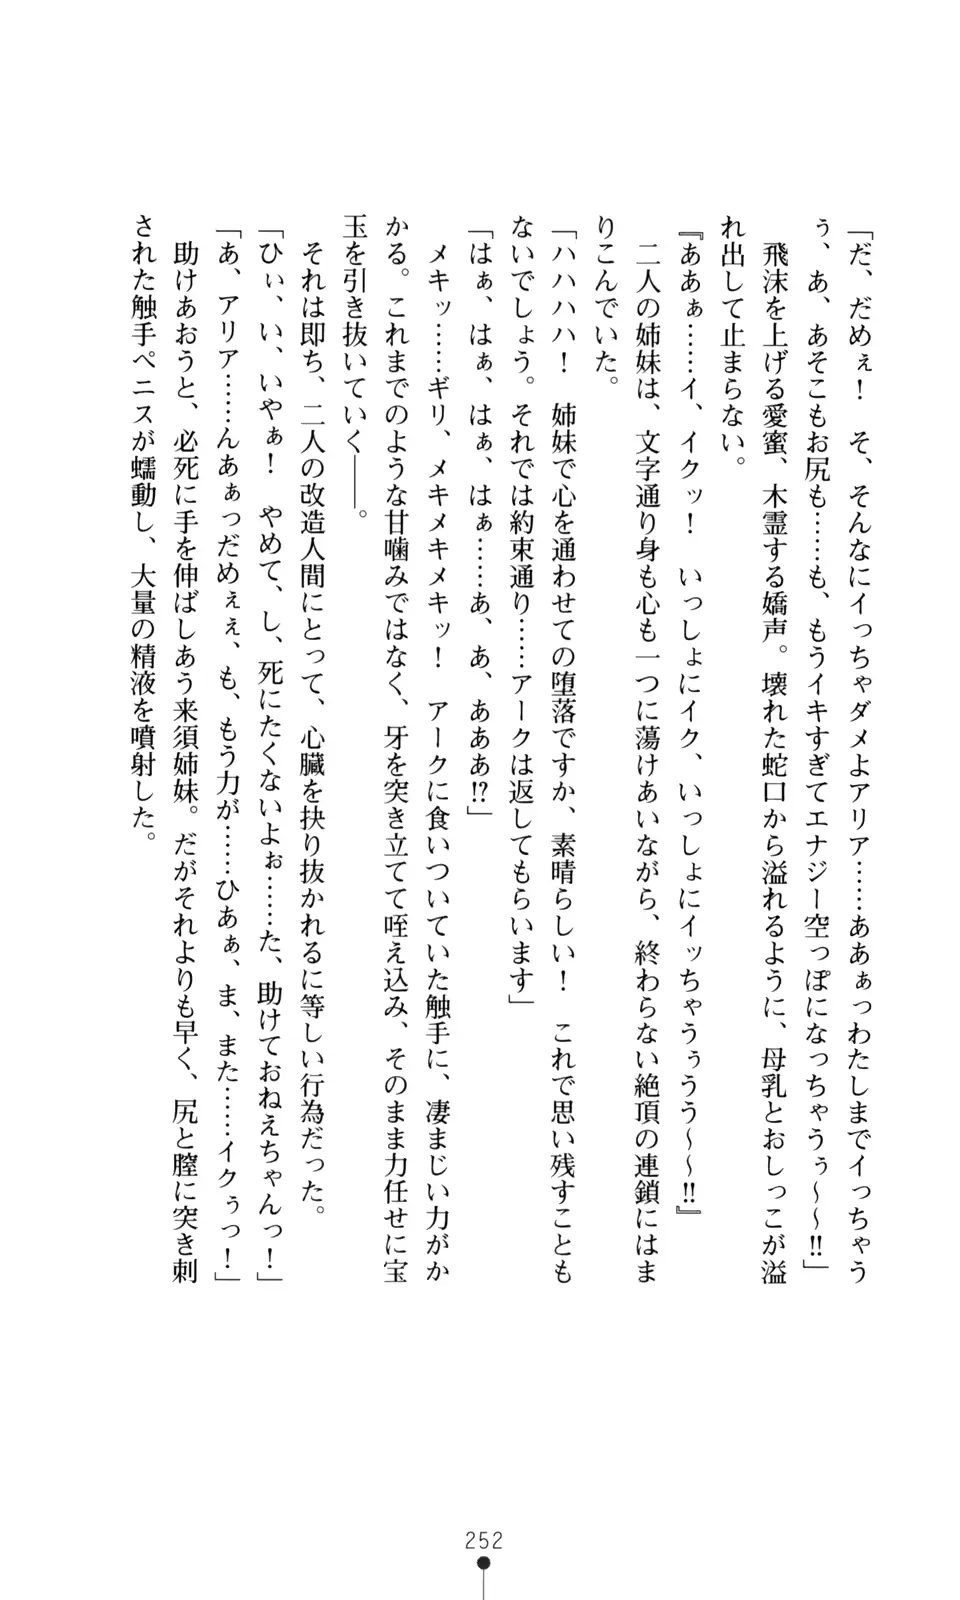 「だ、だめぇ！　そ、そんなにイっちゃダメよアリア……ああぁっわたしまでイっちゃう
ぅ、あ、あそこもお尻も……も、もうイキすぎてエナジー空っぽになっちゃうぅ～～!!」
飛沫を上げる愛蜜、木霊する嬌声。壊れた蛇口から溢れるように、母乳とおしっこが溢
れ出して止まらない。
『ああぁ……イ、イクッ！　いっしょにイク、いっしょにイッちゃうぅうう～～!!』
二人の姉妹は、文字通り身も心も一つに蕩けあいながら、終わらない絶頂の連鎖にはま
りこんでいた。
「ハハハハ！　姉妹で心を通わせての堕落ですか、素晴らしい！　これで思い残すことも
ないでしょう。それでは約束通り……アークは返してもらいます」
「はぁ、はぁ、はぁ、はぁ……あ、あ、あああ!?」
メキッ……ギリ、メキメキメキッ！　アークに食いついていた触手に、凄まじい力がか
かる。これまでのような甘噛みではなく、牙を突き立てて咥え込み、そのまま力任せに宝
玉を引き抜いていく――。
それは即ち、二人の改造人間にとって、心臓を抉り抜かれるに等しい行為だった。
「ひぃ、い、いやぁ！　やめて、し、死にたくないよぉ……た、助けておねえちゃんっ！」
「あ、アリア……んあぁっだめぇぇ、も、もう力が……ひあぁ、ま、また……イクぅっ！」
助けあおうと、必死に手を伸ばしあう来須姉妹。だがそれよりも早く、尻と膣に突き刺
された触手ペニスが蠕動し、大量の精液を噴射した。
252